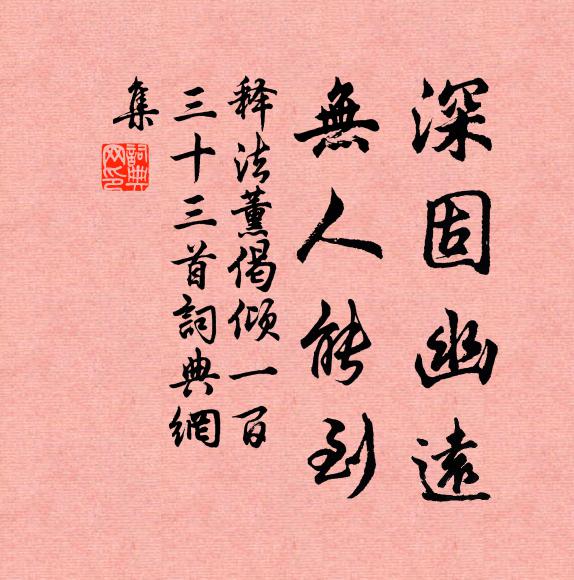 深固幽遠
無人能到
釋法薰偈傾一百
三十三首詞典網
集
詞典網印